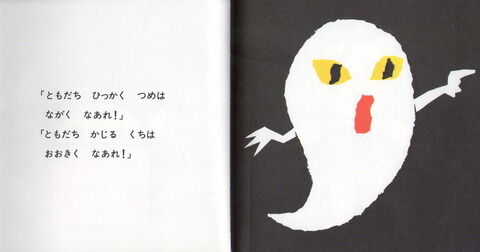 「ともだち　ひっかく　つめは
ながく　なあれ！」
「ともだち　かじる　くちは
おおきく　なあれ！」